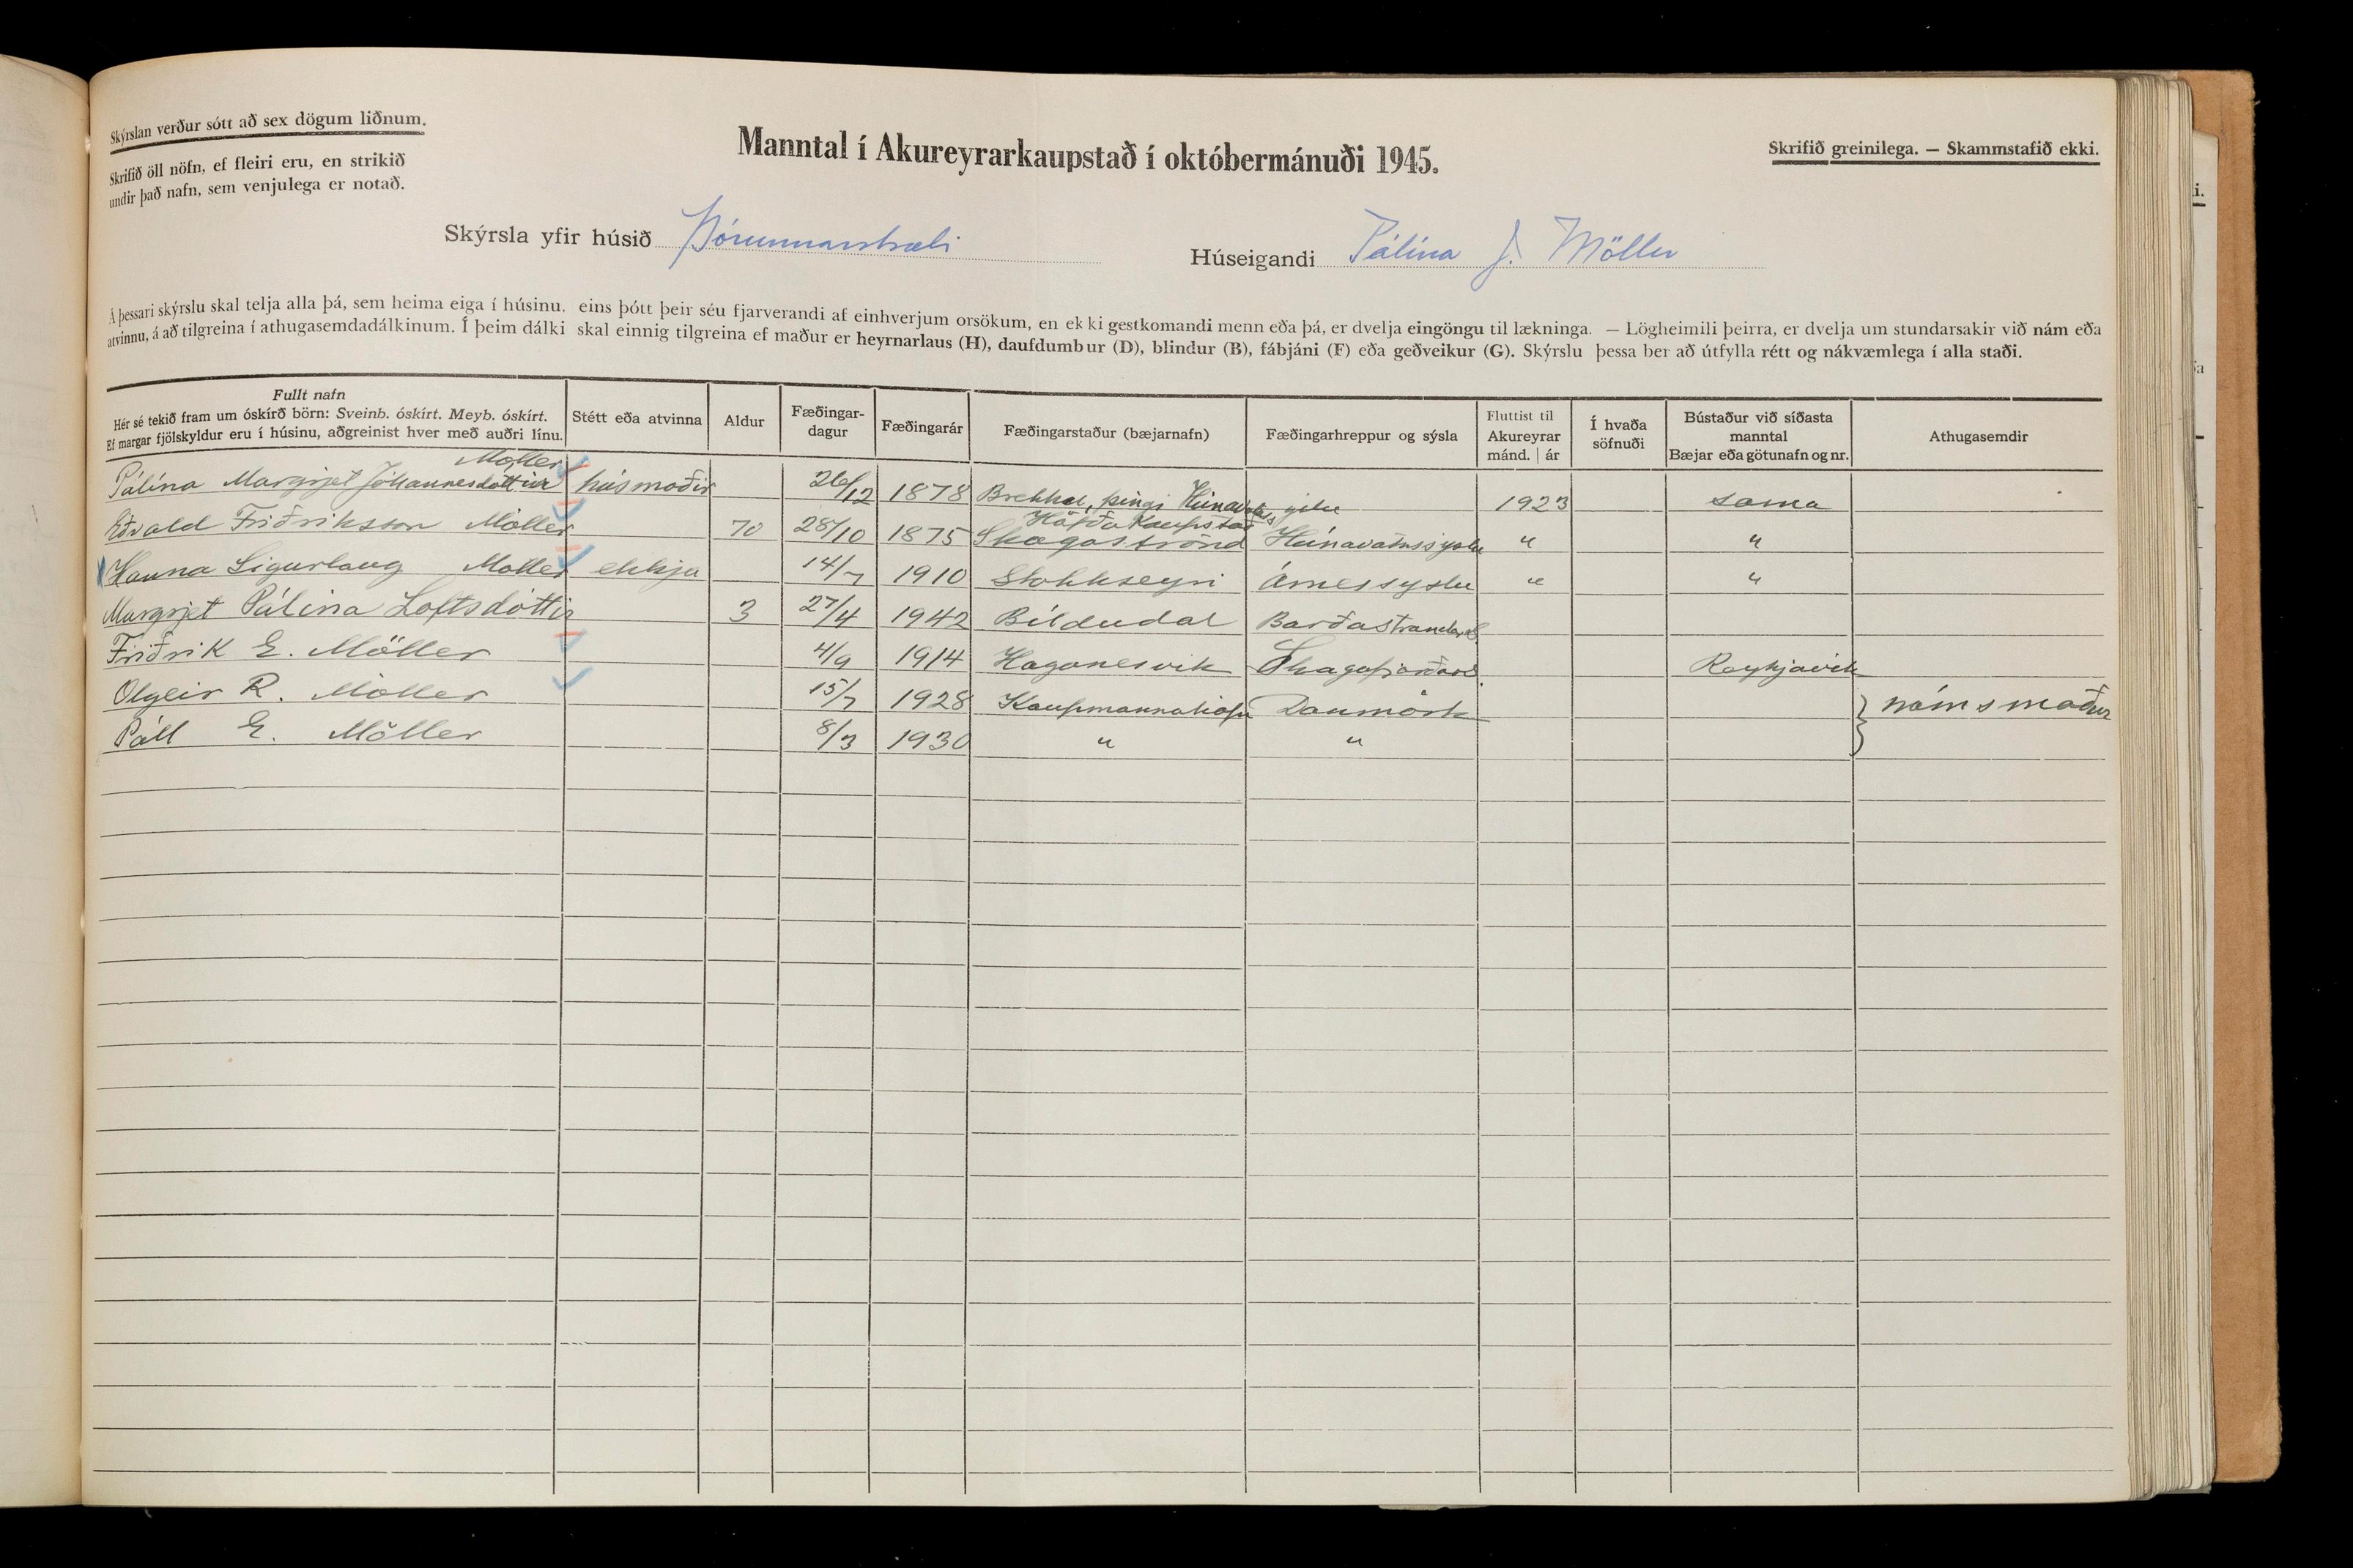 Skýrslan verður sótt að sex dögum liðnum.
Skrifið öll nöfn, ef fleiri eru, en strikið
undir það nafn, sem venjulega er notað.
Manntal í Akureyrarkaupstað í októbermánuði 1945.
Skrifið greinilega. — Skammstafið ekki.
Skýrsla yfir húsið Þórunnarstræti
Húseigandi Pálína J. Möller
Á þessari skýrslu skal telja alla þá, sem heima eiga í húsinu, eins þótt þeir séu fjarverandi af einhverjum orsökum, en ekki gestkomandi menn eða þá, er dvelja eingöngu til lækninga. — Lögheimili þeirra, er dvelja um stundarsakir við nám eða
atvinnu, á að tilgreina í athugasemdadálkinum. Í þeim dálki skal einnig tilgreina ef maður er heyrnarlaus (H), daufdumbur (D), blindur (B), fábjáni (F) eða geðveikur (G). Skýrslu þessa ber að útfylla rétt og nákvæmlega í alla staði.
Fullt nafn
Hér sé tekið fram um óskírð börn: Sveinb. óskírt. Meyb. óskírt.
Ef margar fjölskyldur eru í húsinu, aðgreinist hver með auðri línu.
Stétt eða atvinna
Aldur
Fæðingar-
dagur
Fæðingarár
Fæðingarstaður (bæjarnafn)
Fæðingarhreppur og sýsla
Fluttist til
Akureyrar
mánd. | ár
Í hvaða
söfnuði
Bústaður við síðasta
manntal
Bæjar eða götunafn og nr.
Athugasemdir
Möller
Pálína Margrjet Jóhannesdóttir húsmóðir 26/12 1878 Brekku, þingi Húnavatns sýslu 1923 sama
Höfðakaupstað
Eðvald Friðriksson Möller 70 28/10 1875 Skagaströnd Húnavatnssýslu " "
Hanna Sigurlaug Möller ekkja 14/7 1910 Stokkseyri Árnessýslu " "
Margrjet Pálína Loftsdóttir 3 27/4 1942 Bíldudal Barðastrandar S.
Friðrik E. Möller 4/9 1914 Haganesvik Skagafjarðars. Reykjavik
Olgeir R. Möller 15/7 1928 Kaupmannahöfn Danmörk } námsmaður
Páll E. Möller 8/3 1930 " "